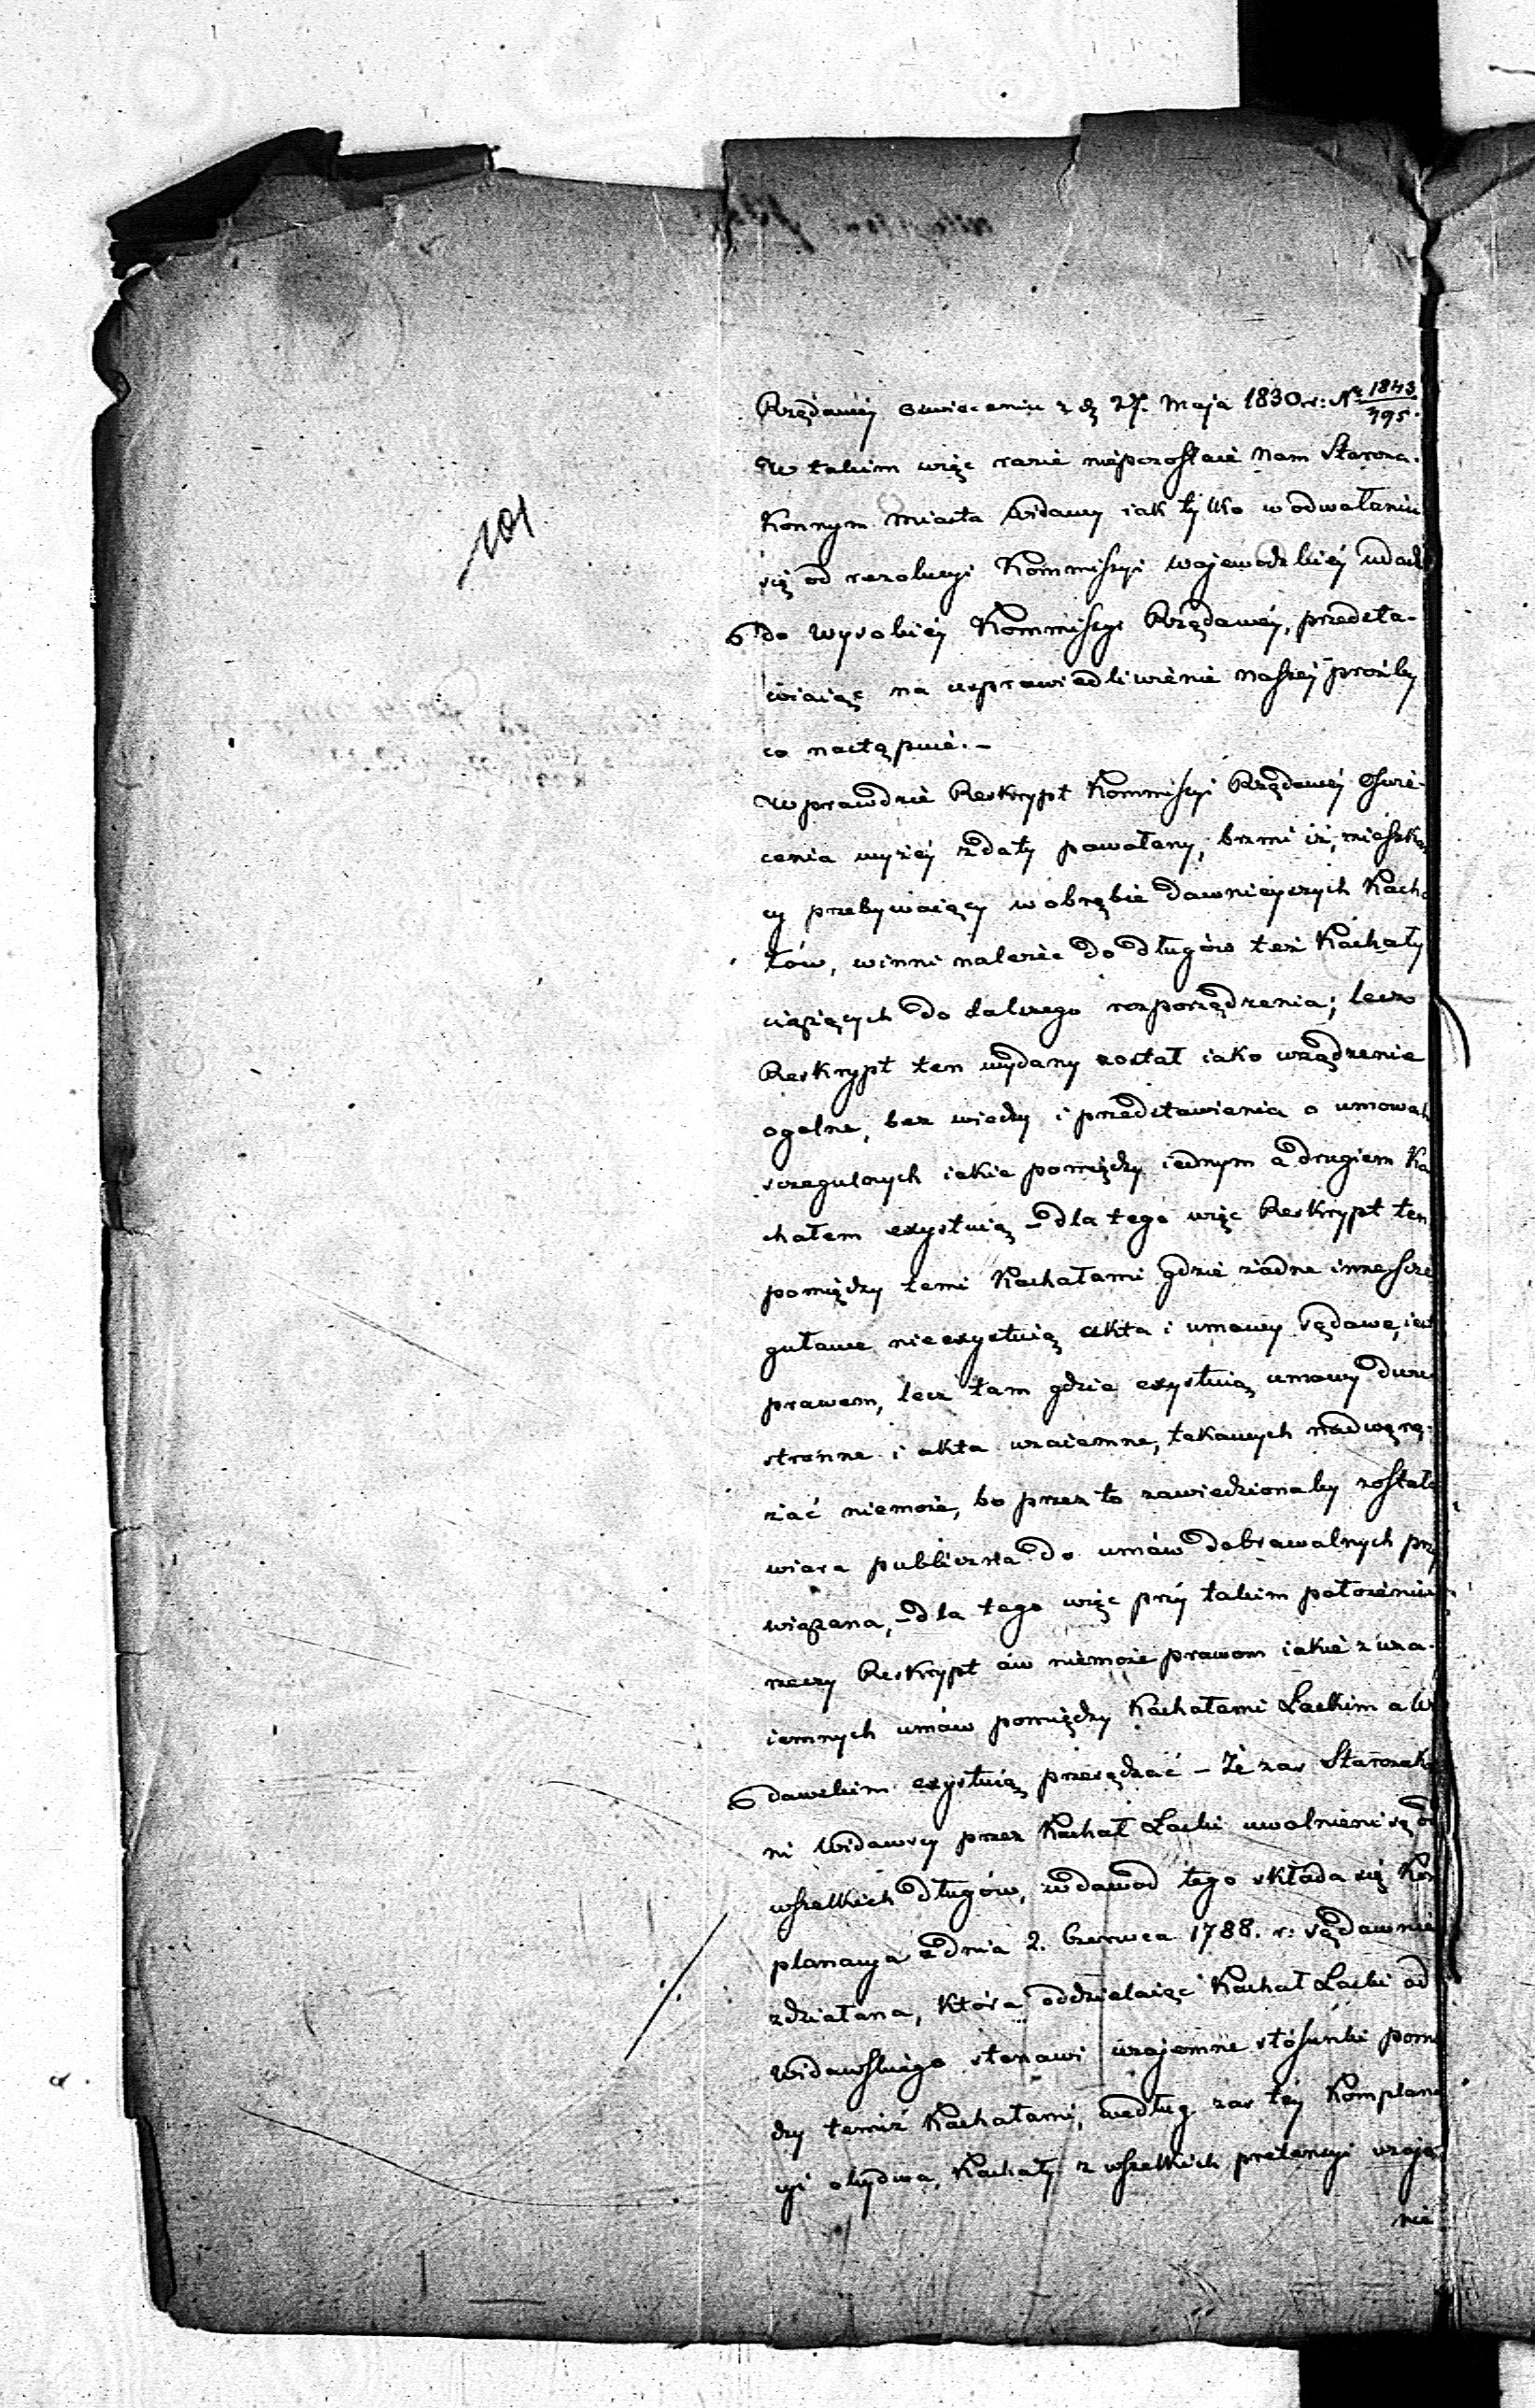 Rządowéy Oswiecenia z d. 27. Maja 1830 r: N° 1843/395.
W takim więc razie niepozostaie Nam Staroza-
Konnym Miasta Widawy iak tylko w odwołaniu
się od rezolucyi Kommissyi Wojewodzkiéy udać
do Wysokiéy Kommissyi Rządowéy, przedsta-
wiaiąc na usprawiedliwienie naszéj proźby
co nastąpuié. -
Wprawdzie Reskrypt Kommissyi Rządowéy Oswié-
cenia wyżéy z daty powołany, brzmi iż, mieszkań
cy przebywaiący w obrębie dawnieyszych Kacha
łów, winni należéć do długów też Kachały
ciążących do dalszego rozporządzenia; lecz
Reskrypt ten wydany został iako urządzenie
ogolne, bez wiedzy i przedstawienia o umowah
szczegulnych iakie pomiędzy iednym a drugiem Ka
chałem exystuią - dla tego więc Reskrypt ten
pomiędzy temi Kachałami gdzie żadne inne szczé
gułowe nieexystuią akta i umowy sądowe, iest
prawem, lecz tam gdzie exystuią umowy dwu
stronne i akta wzaiemne, takowych nadwęrę-
żać niemoże, bo przez to zawiedzionaby została
wiara publiczna do umów dobrowolnych przy
wiązana, - dla tego więc przy takim położeniu
rzeczy Reskrypt ów niemoże prawom iakié z wza-
iemnych umów pomiędzy Kachałami Łaskim a Wi
dawskim exystuią przesądzać - Że zas Starozako
ni Widawscy przez Kachał Łaski uwolnieni są od
wszelkich długów, w dowód tego składa się Kom
planacya z dnia 2. Czerwca 1788. r: sądownie
zdziałana, która oddzielaiąc Kachał Łaski od
Widawskiego stanowi wzajemne stósunki pomię
dzy temiż Kachałami, według zas téy Komplana
cyi obydwa Kachały z wszelkich pretensyi wzajem
nie